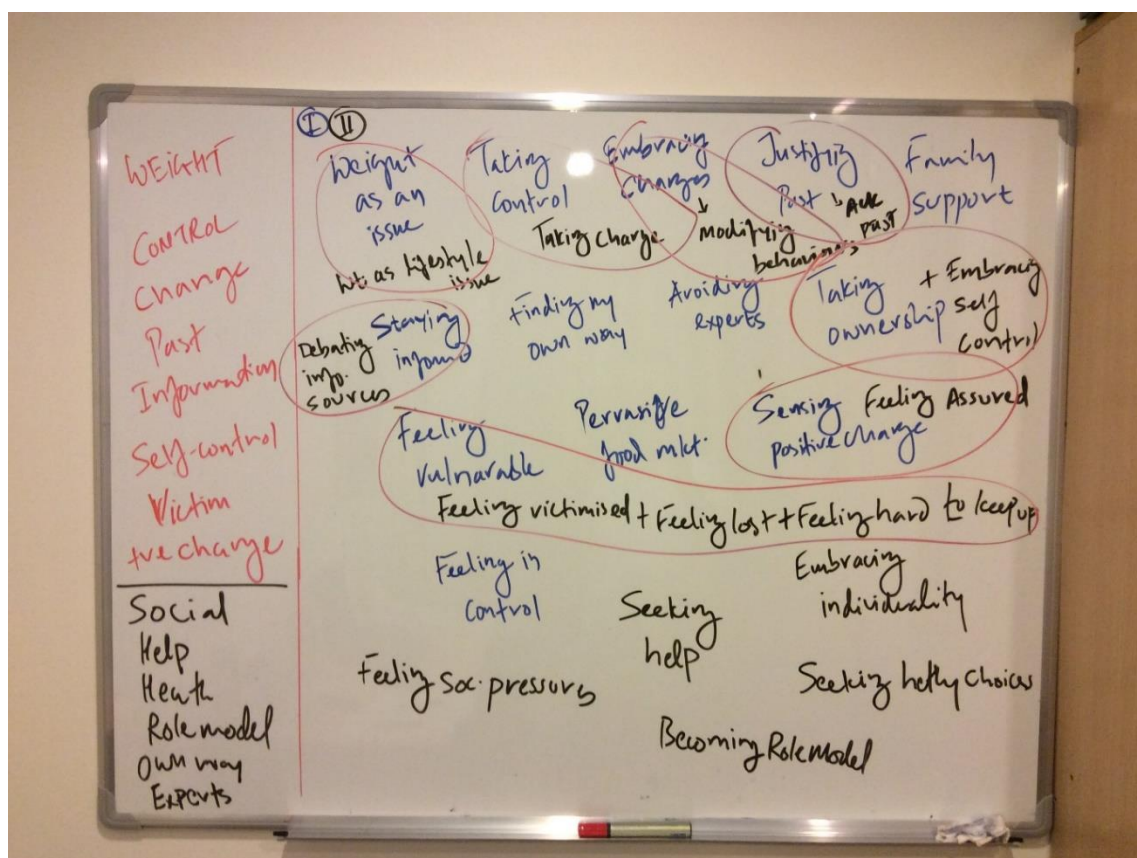 WEIGHT
CONTROL
Change
Past
Information
Self-control
Victim
+ve change
Social
Help
Health
Role model
Own way
Experts
I II
Weight
as an
issue
Wt as lifestyle
issue
Taking
Control
Taking Charge
Embracing
changes
↓
modifying
behaviours
Justifying
Past ↘ Ack
past
Family
support
Debating
info.
sources
Staying
informed
Finding my
own way
Avoiding
experts
Taking
ownership
+ Embracing
self
control
Feeling
vulnarable
Pervasive
food mkt.
Sensing
positive change
Feeling Assured
Feeling victimised + Feeling lost + Feeling hard to keep up
Feeling in
Control
Seeking
help
Embracing
individuality
Feeling soc. pressures
Seeking helthy choices
Becoming Role model